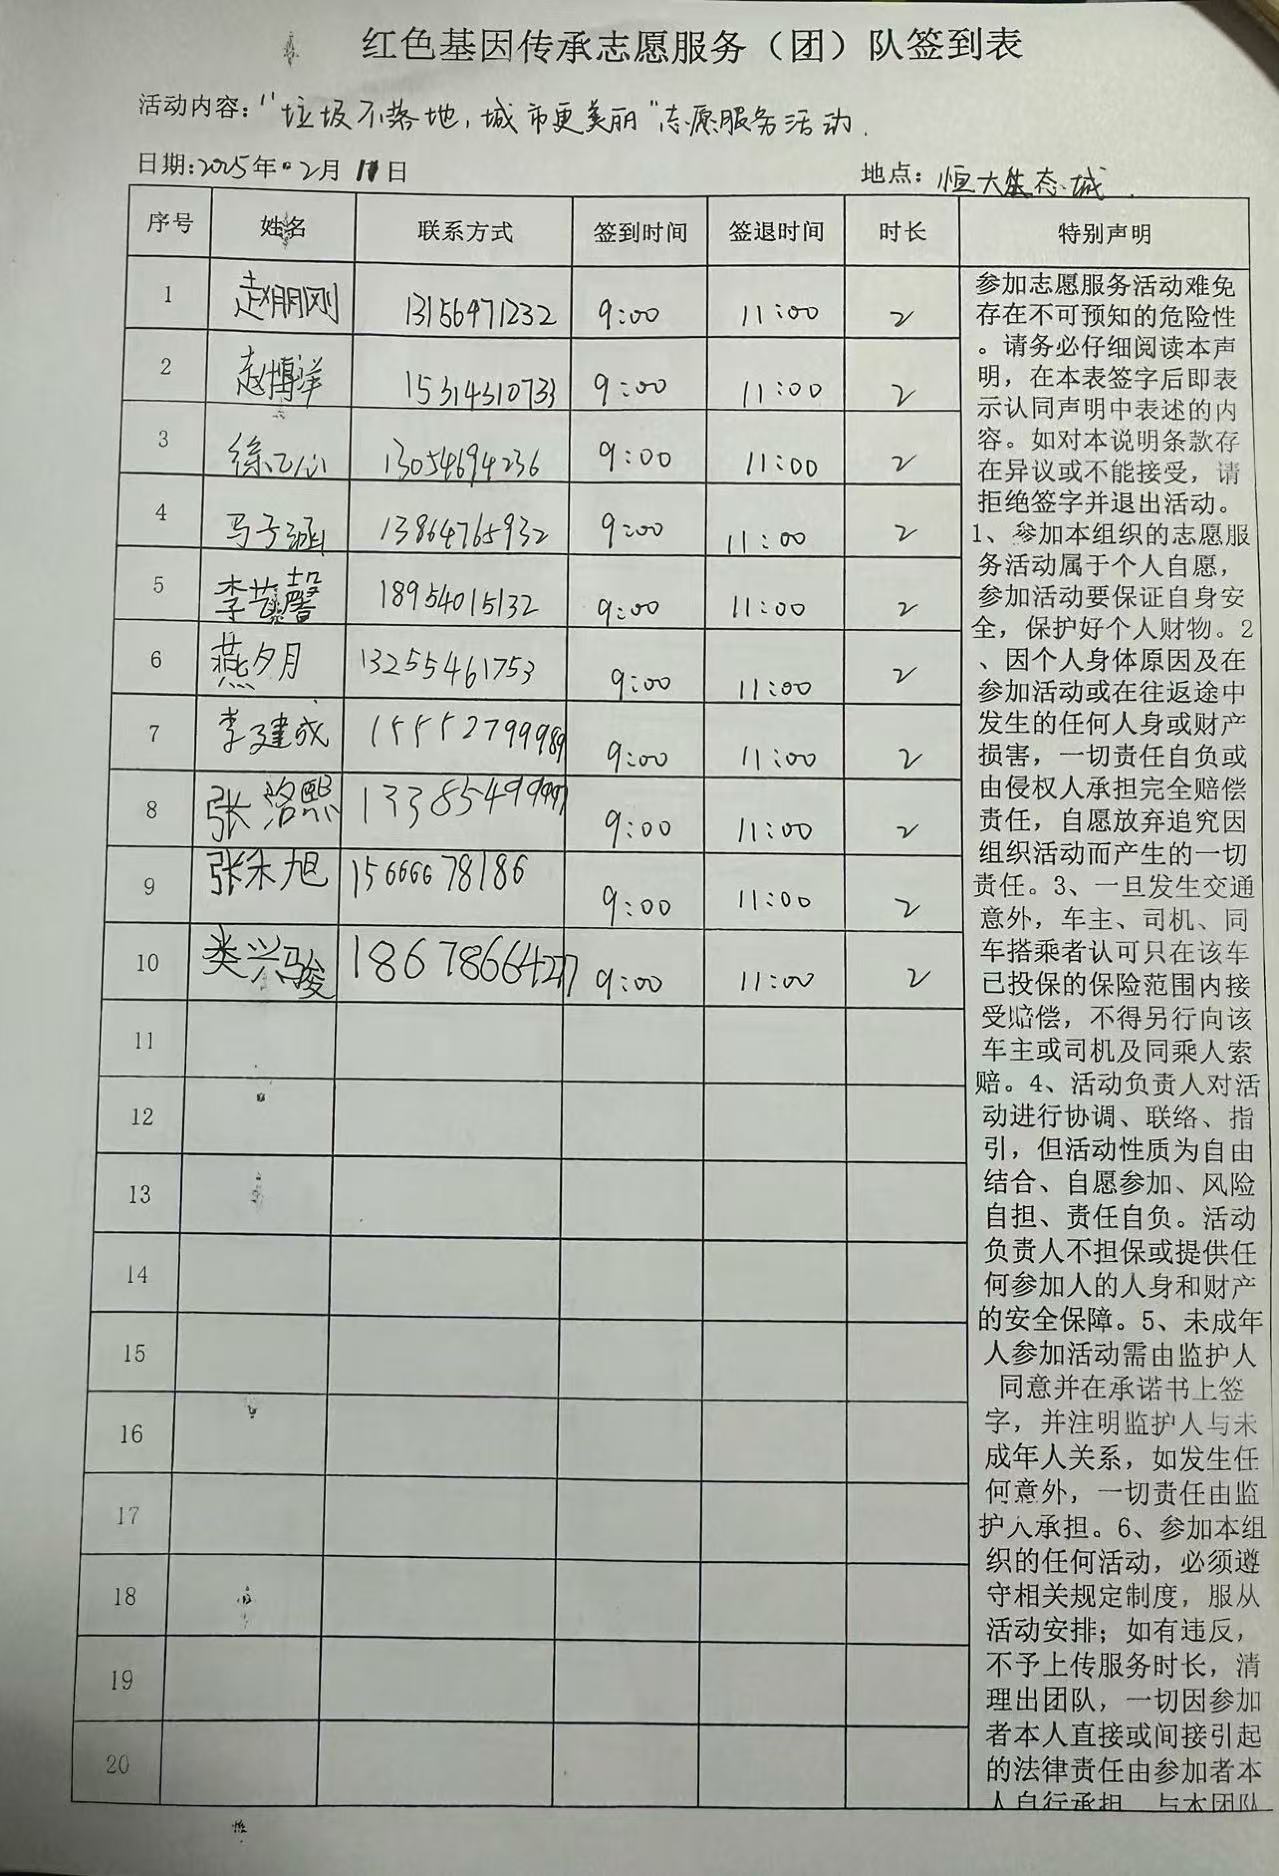 红色基因传承志愿服务（团）队签到表
活动内容："垃圾不落地，城市更美丽"志愿服务活动.
日期:2025年.2月11日 地点：恒大生态城.
序号 姓名 联系方式 签到时间 签退时间 时长 特别声明
1 赵朋刚 13156471232 9:00 11:00 2
2 赵博洋 15314310733 9:00 11:00 2
3 徐乙心 13054694236 9:00 11:00 2
4 马子涵 13864765932 9:00 11:00 2
5 李艺馨 18954015132 9:00 11:00 2
6 燕夕月 13255461753 9:00 11:00 2
7 李建成 15552799989 9:00 11:00 2
8 张洛熙 9:00 11:00 2
9 张禾旭 15666678186 9:00 11:00 2
10 类兴骏 9:00 11:00 2
11
12
13
14
15
16
17
18
19
20
参加志愿服务活动难免
存在不可预知的危险性
。请务必仔细阅读本声
明，在本表签字后即表
示认同声明中表述的内
容。如对本说明条款存
在异议或不能接受，请
拒绝签字并退出活动。
1、参加本组织的志愿服
务活动属于个人自愿，
参加活动要保证自身安
全，保护好个人财物。2
、因个人身体原因及在
参加活动或在往返途中
发生的任何人身或财产
损害，一切责任自负或
由侵权人承担完全赔偿
责任，自愿放弃追究因
组织活动而产生的一切
责任。3、一旦发生交通
意外，车主、司机、同
车搭乘者认可只在该车
已投保的保险范围内接
受赔偿，不得另行向该
车主或司机及同乘人索
赔。4、活动负责人对活
动进行协调、联络、指
引，但活动性质为自由
结合、自愿参加、风险
自担、责任自负。活动
负责人不担保或提供任
何参加人的人身和财产
的安全保障。5、未成年
人参加活动需由监护人
同意并在承诺书上签
字，并注明监护人与未
成年人关系，如发生任
何意外，一切责任由监
护人承担。6、参加本组
织的任何活动，必须遵
守相关规定制度，服从
活动安排；如有违反，
不予上传服务时长，清
理出团队，一切因参加
者本人直接或间接引起
的法律责任由参加者本
人自行承担，与本团队